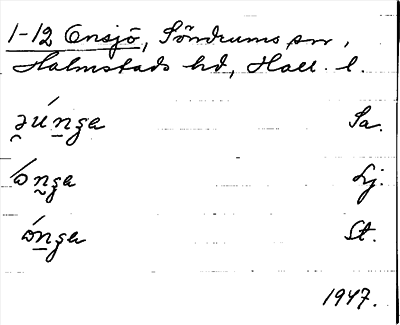 1-12 Ensjö, Söndrums sn,
Halmstads hd, Hall. l.
ə̯ún̲ga Sa.
ɔ́n̰ga Lj.
ɔ́n̲ga St.
1947.